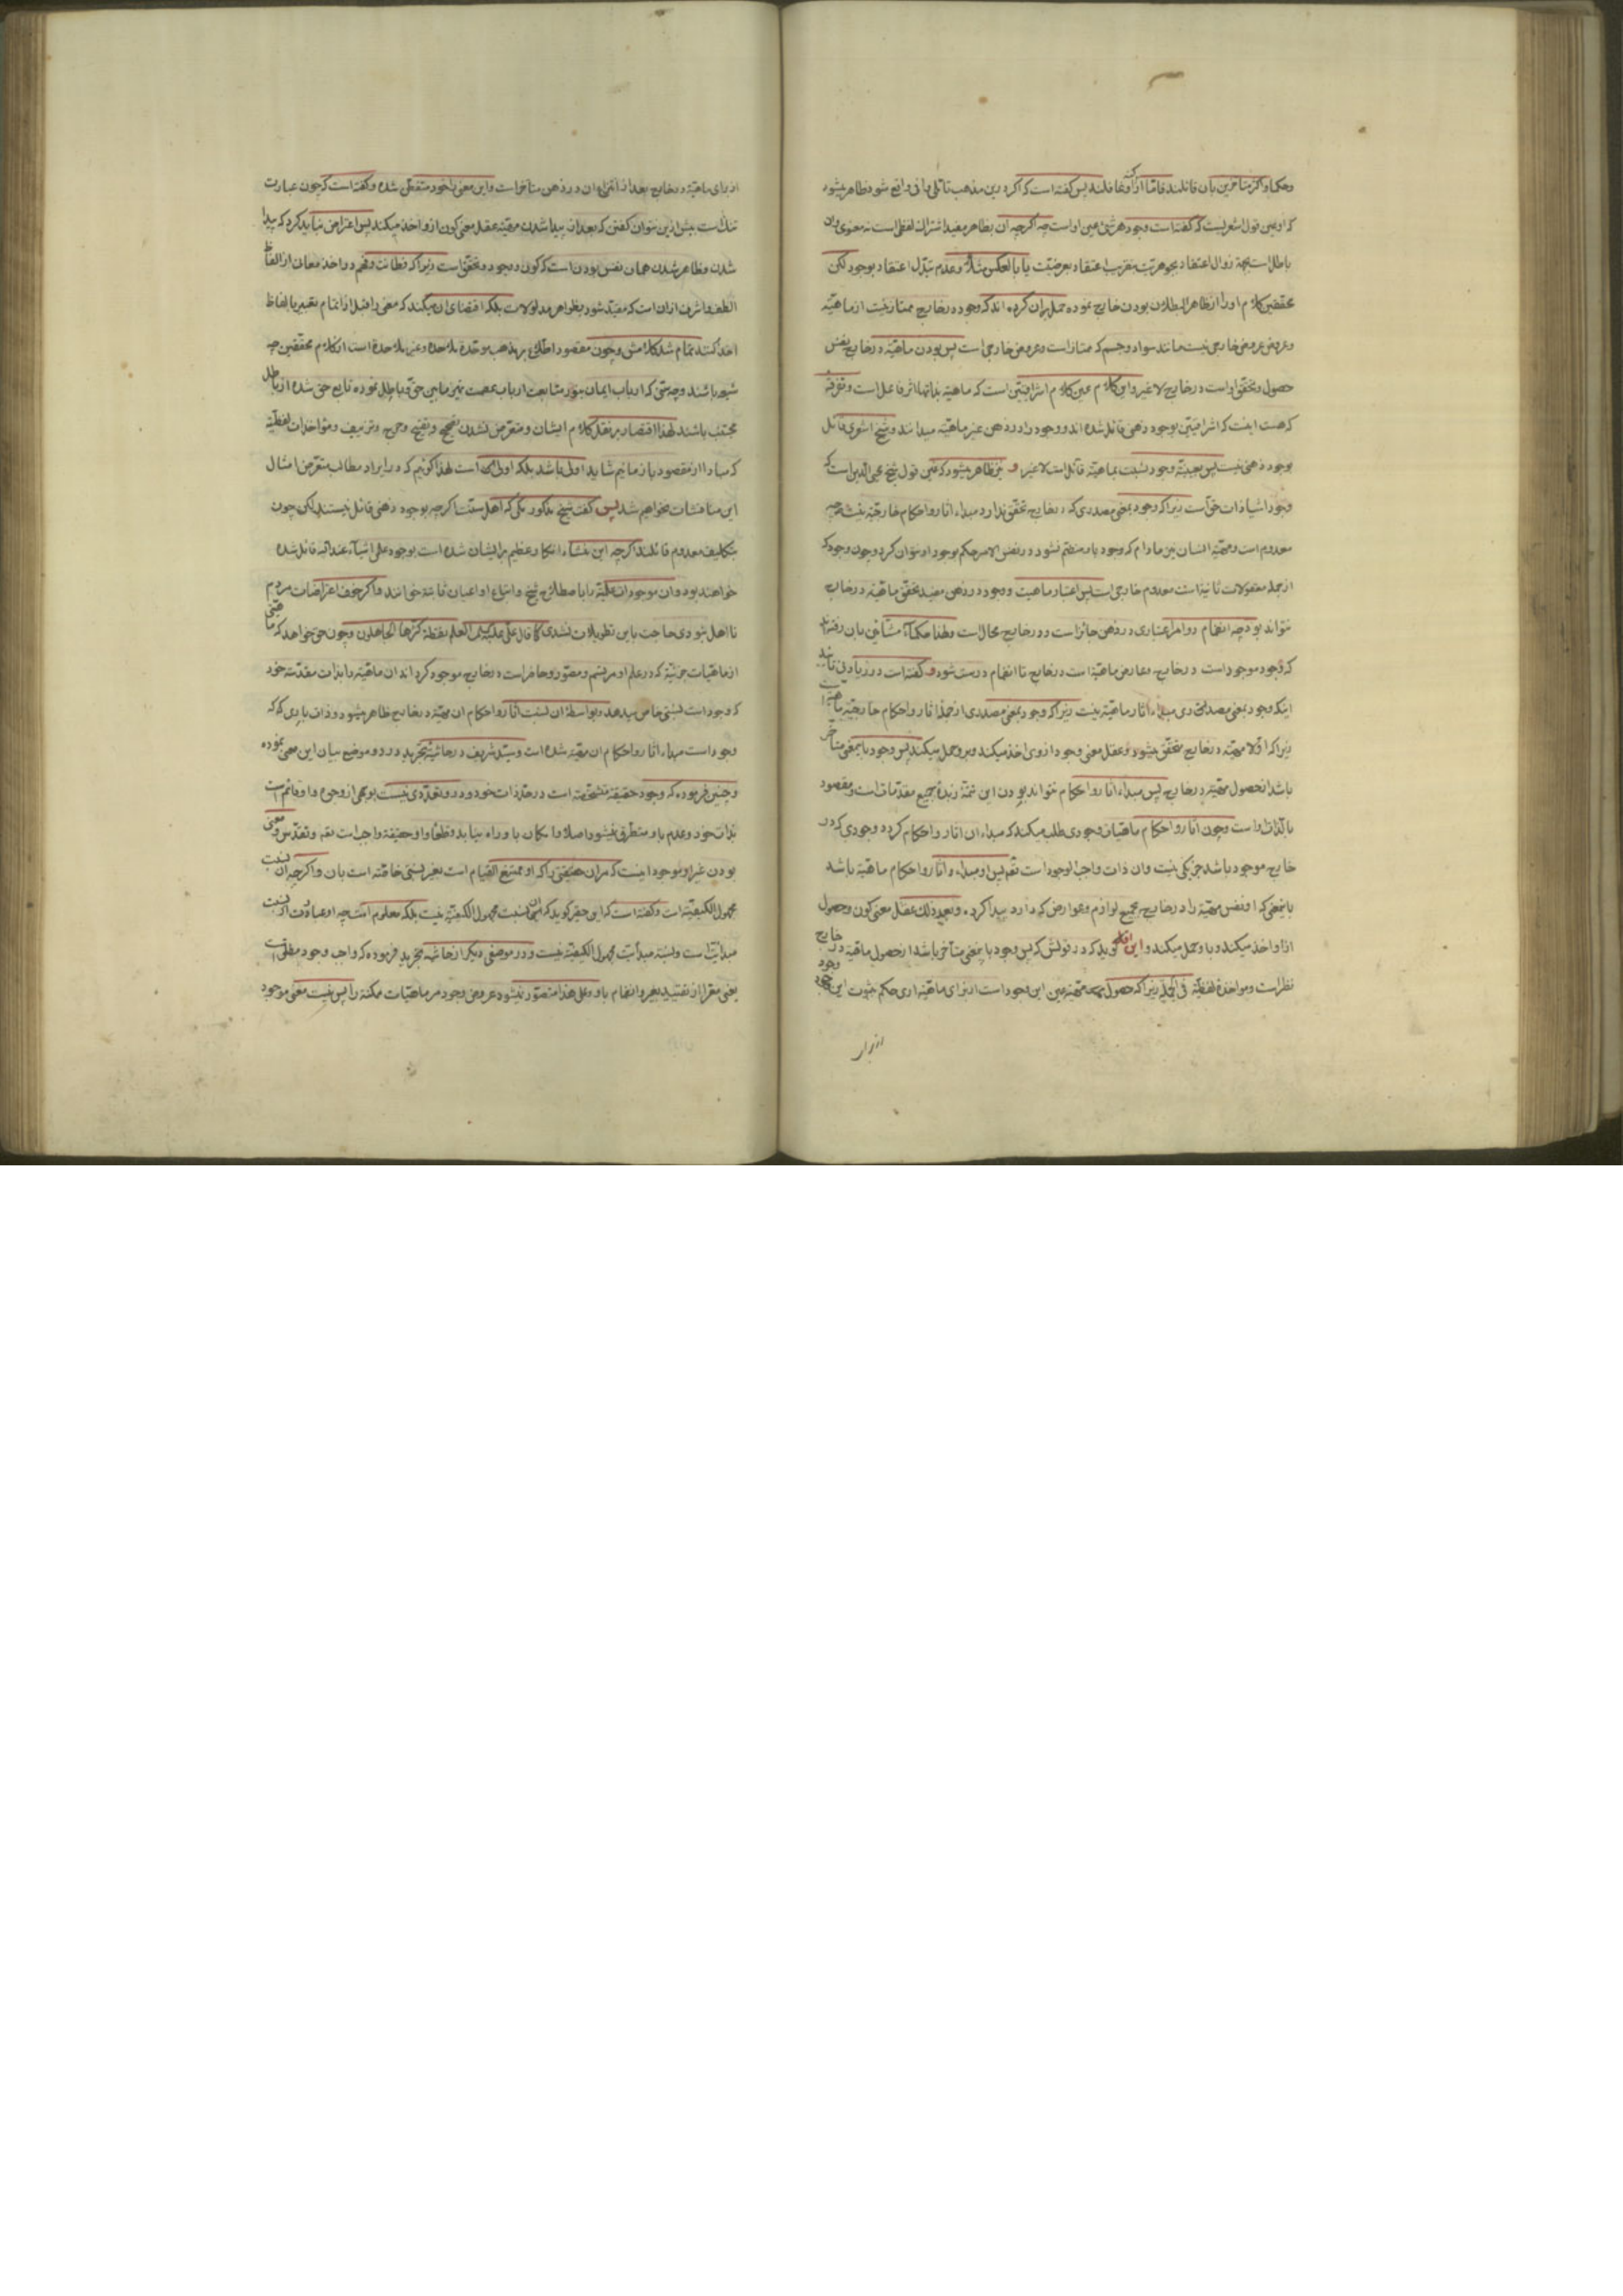 وحکما و اکثر متأخرین بان قائلند فاما از آن غافلند پس گفته است که اگر درین مذهب تأملی وافی واقع شود ظاهر میشود
که او عین قول اشعریست که گفته است وجود هر شئ عین اوست چه اگرچه آن بظاهر مفید اشتراک لفظی است نه معنوی و آن
باطل است بجهة زوال اعتقاد بجوهریت بتقریب اعتقاد بعرضیّت یا بالعکس مثلا وعدم تبدّل اعتقاد بوجود لکن
محققین کلام او را از ظاهر البطلان بودن خارج نموده حمل بران کرده اند که وجود در خارج ممتاز نیست از ماهیّة
وعروض عروض خارجی نیست مانند سواد وجسم که ممتاز است وعروض خارجی است پس بودن ماهیّة در خارج نفس
حصول وتحقق اوست در خارج لا غیر واین کلام عین کلام اشراقیّین است که ماهیّة بذاتها اثر فاعل است وتفرقه
که هست اینست که اشراقیّین بوجود ذهنی قائل شده اند ووجود را در ذهن غیر ماهیّة میدانند وشیخ اشعری قائل
بوجود ذهنی نیست پس بعینیّة وجود نسبت بماهیّة قائل است لا غیر و نیز ظاهر میشود که عین قول شیخ محیی الدین است که
وجود اشیا ذات حق است زیرا که وجود بمعنی مصدری که در خارج تحقق ندارد مبداء اثار واحکام خارجیّة نیست چه
معدوم است ومهیّة انسان نیز مادام که وجود باو منظم نشود در نفس الامر حکم بوجود او نتوان کرد وچون وجود که
از جمله معقولات ثانیة است معدوم خارجی است پس اعتبار ماهیت ووجود در ذهن مفید تحقق ماهیّة در خارج
نتواند بود چه انضمام دو امر اعتباری در ذهن جائز است ودر خارج محال است ولهذا حکماء مشائین بان رفته اند
که وجود موجود است در خارج وعارض ماهیّة است در خارج تا انضمام درست شود و گفته است در زیادتی تأیید
اینکه وجود بمعنی مصدری مبداء اثار ماهیّة نیست زیرا که وجود بمعنی مصدری از جملة اثار واحکام خارجیّة ماهیّة است
زیرا که اوّلا مهیّة در خارج متحقق میشود وعقل معنی وجود از وی اخذ میکند وبر وحمل میکند پس وجود باین معنی متأخر
باشد از حصول مهیّة در خارج پس مبداء اثار واحکام نتواند بودن این تتمة زبدة جمیع مقدّمات است ومقصود
بالذات اوست وچون اثار واحکام ماهیّات وجودی طلب میکند که مبداء ان اثار واحکام گردد وجودی که در
خارج موجود باشد جز یکی نیست وان ذات واجب الوجود است تقدّس پس او مبداء واثار واحکام ماهیّة باشد
باینمعنی که او نفس مهیّة را در خارج بجمیع لوازم وعوارض که دارد پیدا کرده وبعد ذلک عقل معنی کون وحصول
ازو اخذ میکند وباو حمل میکند و این اقل گوید که در قولش که پس وجود باینمعنی متأخر باشد از حصول ماهیّة در خارج
نظر است ومواخذة لفظیّة فی الجملة زیرا که حصول مهیّة عین این وجود است از برای ماهیّة اری حکم بثبوت این وجود
از برای
از برای ماهیّة در خارج بعد از انتزاع ان در ذهن متأخر است واین معنی را خود متفطن شده وگفته است که چون عبارت
تنگ است بیش ازین نتوان گفتن که بعد از پیدا شدن مهیّة عقل معنی کون از و اخذ میکند پس اعتراض نباید کرد که پیدا
شدن وظاهر شدن همان نفس بودن است که کون ووجود وتحقق است زیرا که فطانت وفهم در اخذ معانی از الفاظ
الطف واشرف از ان است که مقید شود بظواهر مدلولات بلکه اقتضای ان میکند که معنی را قبل از اتمام تعبیر بالفاظ
اخذ کند تمام شد کلامش وچون مقصود اطلاع بر مذهب موحّدة ملاحدة وغیر ملاحدة است از کلام محققین چه
شیعه باشند وچه سنّی که ارباب ایمان بنور متابعت ارباب عصمت تمیز مابین حق وباطل نموده تابع حق شده از باطل
مجتنب باشند لهذا اقتصار بر نقل کلام ایشان ومتعرّض نشدن تصحیح وتقبیح وجرح وتزییف ومؤاخذات لفظیّة
که مبادا از مقصود باز مانیم شاید اولی باشد بلکه اولی است لهذا گوئیم که در ایراد مطالب متعرّض امثال
این مناقشات نخواهیم شد پس گفت شیخ مذکور مکّی که اهل سنّت اگرچه بوجود ذهنی قائل نیستند لکن چون
بتکلیف معدوم قائلند اگرچه این منشاء انکار عظیم بر ایشان شده است بوجود علمی اشیاء عند الله قائل شده
خواهند بود وان موجودات علمیّة را باصطلاح شیخ واتباع او اعیان ثابته خوانند واگر خوف اعتراضات مردم
نااهل نبودی حاجت باین تطویلات نشدی کما قال علی علیه السلام العلم نقطة کثّرها الجاهلون وچون حق خواهد که ماهیتی
از ماهیّات جزئیّه که در علم او مرتسم ومصوّر وحاضر است در خارج موجود گرداند ان ماهیّة را بذات مقدّسه خود
که وجود است نسبتی خاص میدهد وبواسطة ان نسبت اثار واحکام ان مهیّة در خارج ظاهر میشود وذات باری که
وجود است مبداء اثار واحکام ان مهیّة شده است وسیّد شریف در حاشیة تجرید در دو موضع بیان این معنی نموده
وچنین فرموده که وجود حقیقة مشخّصة است در حدّ ذات خود ودر و تعدّدی نیست بوجهی از وجوه واو قائم است
بذات خود وعدم باو متطرق نمیشود اصلا وامکان باو راه نیابد وقطعا واو حقیقة واجب است تقدّس ومعنی
بودن غیر او موجود اینست که مران حقیقتی را که او ممتنع القیام است بغیر نسبتی خاصّه است بان واگرچه ان نسبت
مجهول الکیفیّة است وگفته است که این حقیر گوید که ان نسبت مجهول الکیفیّة نیست بلکه معلوم است چه او عبارت از نسبت
مبدائیّت است ونسبة مبدائیّت مجهول الکیفیّة نیست ودر موضعی دیگر از حاشیة تجرید فرموده که واجب وجود مطلق است
یعنی معرّا از تقیّید بغیر وانضمام باو وعلی هذا متصوّر نمیشود عروض وجود مر ماهیّات ممکنة را پس نیست معنی موجود